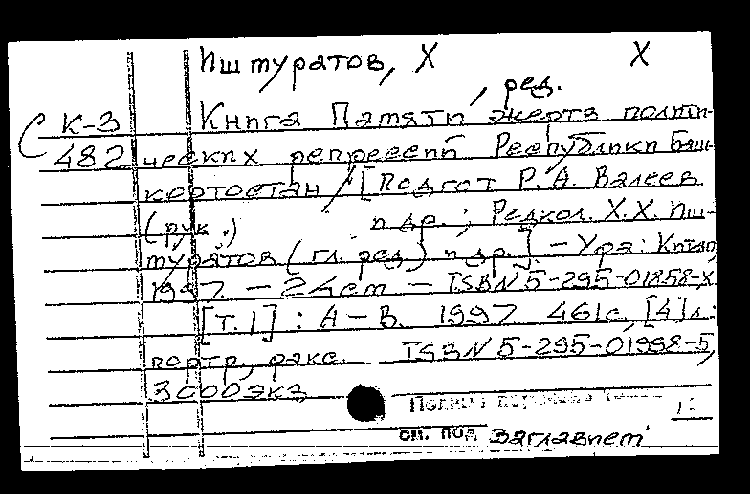 Иштуратов, Х Х
, ред.
С К-3 Книга Памяти жертв полити-
482 ческих репрессий Республики Баш-
кортостан / [Подгот Р. А. Валеев
(рук.) и др. ; Редкол. Х.Х. Иш-
туратов (гл. ред.) и др.]. - Уфа : Китап,
1997. - 24 cm - ISBN 5-295-01858-X
[Т. 1] : А - В. 1997 461 с, [4] л.:
портр, факс. ISBN 5-295-01998-5,
3000 экз
Полное описание
см. под заглавием